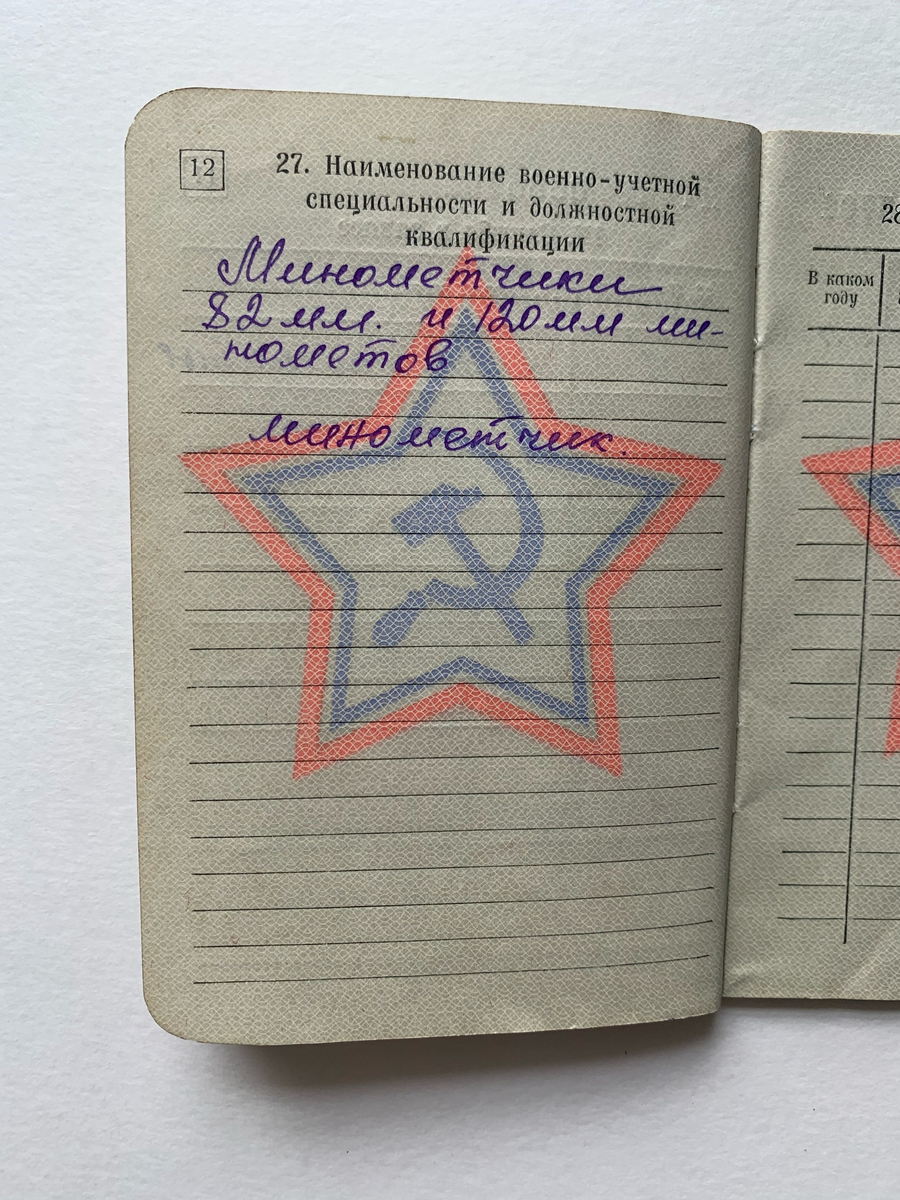 12
27. Наименование военно-учетной
специальности и должностной
квалификации
Минометчики
82 мм. и 120 мм ми-
нометов
минометчик.
28
В каком
году